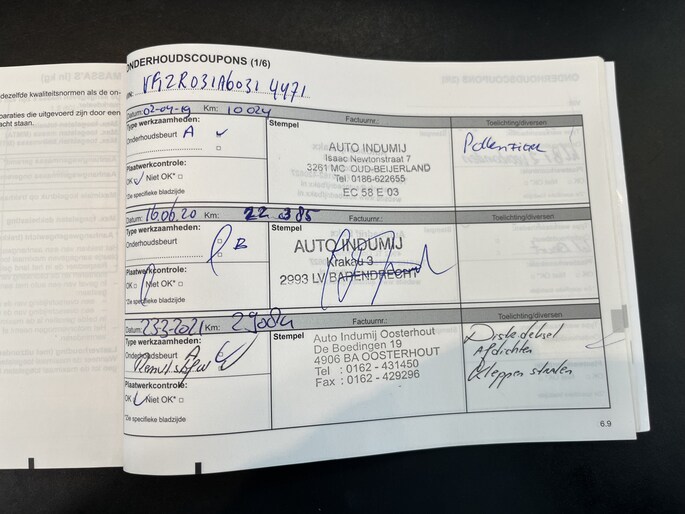 dezelfde kwaliteitsnormen als de on-
paraties die uitgevoerd zijn door een
acht staan.
ONDERHOUDSCOUPONS (1/6)
Datum: 02-04-19 Km: 10024
Type werkzaamheden:
Onderhoudsbeurt A
Plaatwerkcontrole:
OK Niet OK*
*De specifieke bladzijde
Stempel
Factuurnr.:
AUTO INDUMIJ
Isaac Newtonstraat 7
3261 MC OUD-BEIJERLAND
Tel. 0186-622655
EC 58 E 03
Toelichting/diversen
Datum: 16.06.20 Km: 22 385
Type werkzaamheden:
Onderhoudsbeurt B
Plaatwerkcontrole:
OK Niet OK*
*De specifieke bladzijde
Stempel
Factuurnr.:
AUTO INDUMIJ
Krakau 3
2993 LV BARENDRECHT
Toelichting/diversen
Datum: 23-3-2021 Km:
Type werkzaamheden:
Onderhoudsbeurt A
Plaatwerkcontrole:
OK Niet OK*
*De specifieke bladzijde
Stempel
Factuurnr.:
Auto Indumij Oosterhout
De Boedingen 19
4906 BA OOSTERHOUT
Tel : 0162 - 431450
Fax : 0162 - 429296
Toelichting/diversen
afdichten
6.9